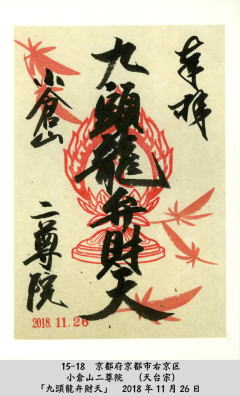 奉拝
九頭龍弁財天
小倉山
二尊院
2018.11.26
15-18 京都府京都市右京区
小倉山二尊院 (天台宗)
「九頭龍弁財天」 2018年11月26日